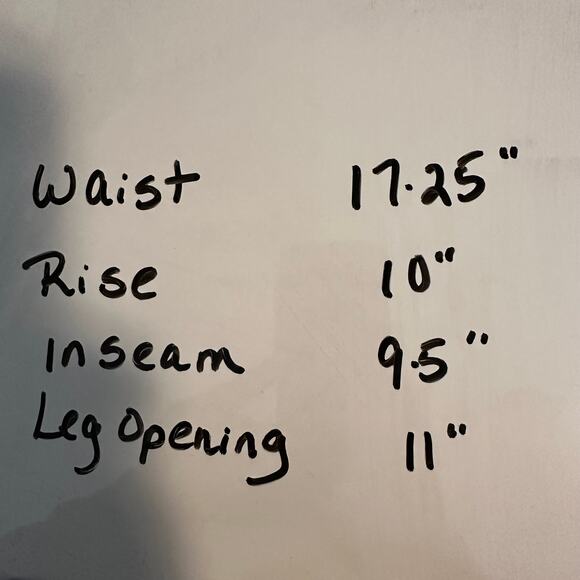 Waist 17.25"
Rise 10"
Inseam 9.5"
Leg Opening 11"